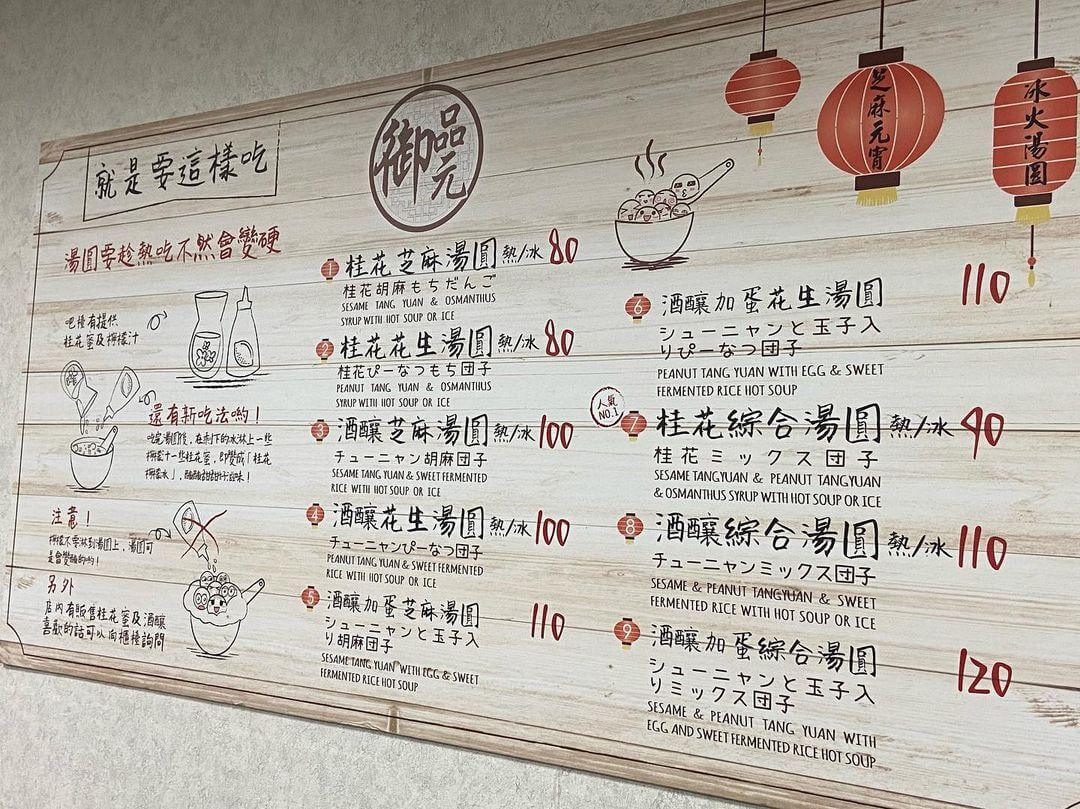 就是要這樣吃
湯圓要趁熱吃不然會變硬
吧檯有提供
桂花蜜及檸檬汁
還有新吃法喲！
吃完湯圓後，在剩下的冰淋上一些
檸檬汁一些桂花蜜，即變成「桂花
檸檬冰」，酸酸甜甜
注意！
檸檬不要淋到湯圓上，湯圓可
是會變醜的喲！
另外
店內有販售桂花蜜及酒釀
喜歡的話可以向櫃檯詢問
御品元
1 桂花芝麻湯圓 熱/冰 80
桂花胡麻もちだんご
SESAME TANG YUAN & OSMANTHUS
SYRUP WITH HOT SOUP OR ICE
2 桂花花生湯圓 熱/冰 80
桂花ぴーなつもち団子
PEANUT TANG YUAN & OSMANTHUS
SYRUP WITH HOT SOUP OR ICE
3 酒釀芝麻湯圓 熱/冰 100
チューニャン胡麻団子
SESAME TANG YUAN & SWEET FERMENTED
RICE WITH HOT SOUP OR ICE
4 酒釀花生湯圓 熱/冰 100
チューニャンぴーなつ団子
PEANUT TANG YUAN & SWEET FERMENTED
RICE WITH HOT SOUP OR ICE
5 酒釀加蛋芝麻湯圓 110
シューニャンと玉子入
り胡麻団子
SESAME TANG YUAN WITH EGG & SWEET
FERMENTED RICE HOT SOUP
芝麻元宵
冰火湯圓
6 酒釀加蛋花生湯圓 110
シューニャンと玉子入
りぴーなつ団子
PEANUT TANG YUAN WITH EGG & SWEET
FERMENTED RICE HOT SOUP
人氣
NO.1
7 桂花綜合湯圓 熱/冰 90
桂花ミックス団子
SESAME TANGYUAN & PEANUT TANGYUAN
& OSMANTHUS SYRUP WITH HOT SOUP OR ICE
8 酒釀綜合湯圓 熱/冰 110
チューニャンミックス団子
SESAME & PEANUT TANGYUAN & SWEET
FERMENTED RICE WITH HOT SOUP OR ICE
9 酒釀加蛋綜合湯圓 120
シューニャンと玉子入
りミックス団子
SESAME & PEANUT TANG YUAN WITH
EGG AND SWEET FERMENTED RICE HOT SOUP